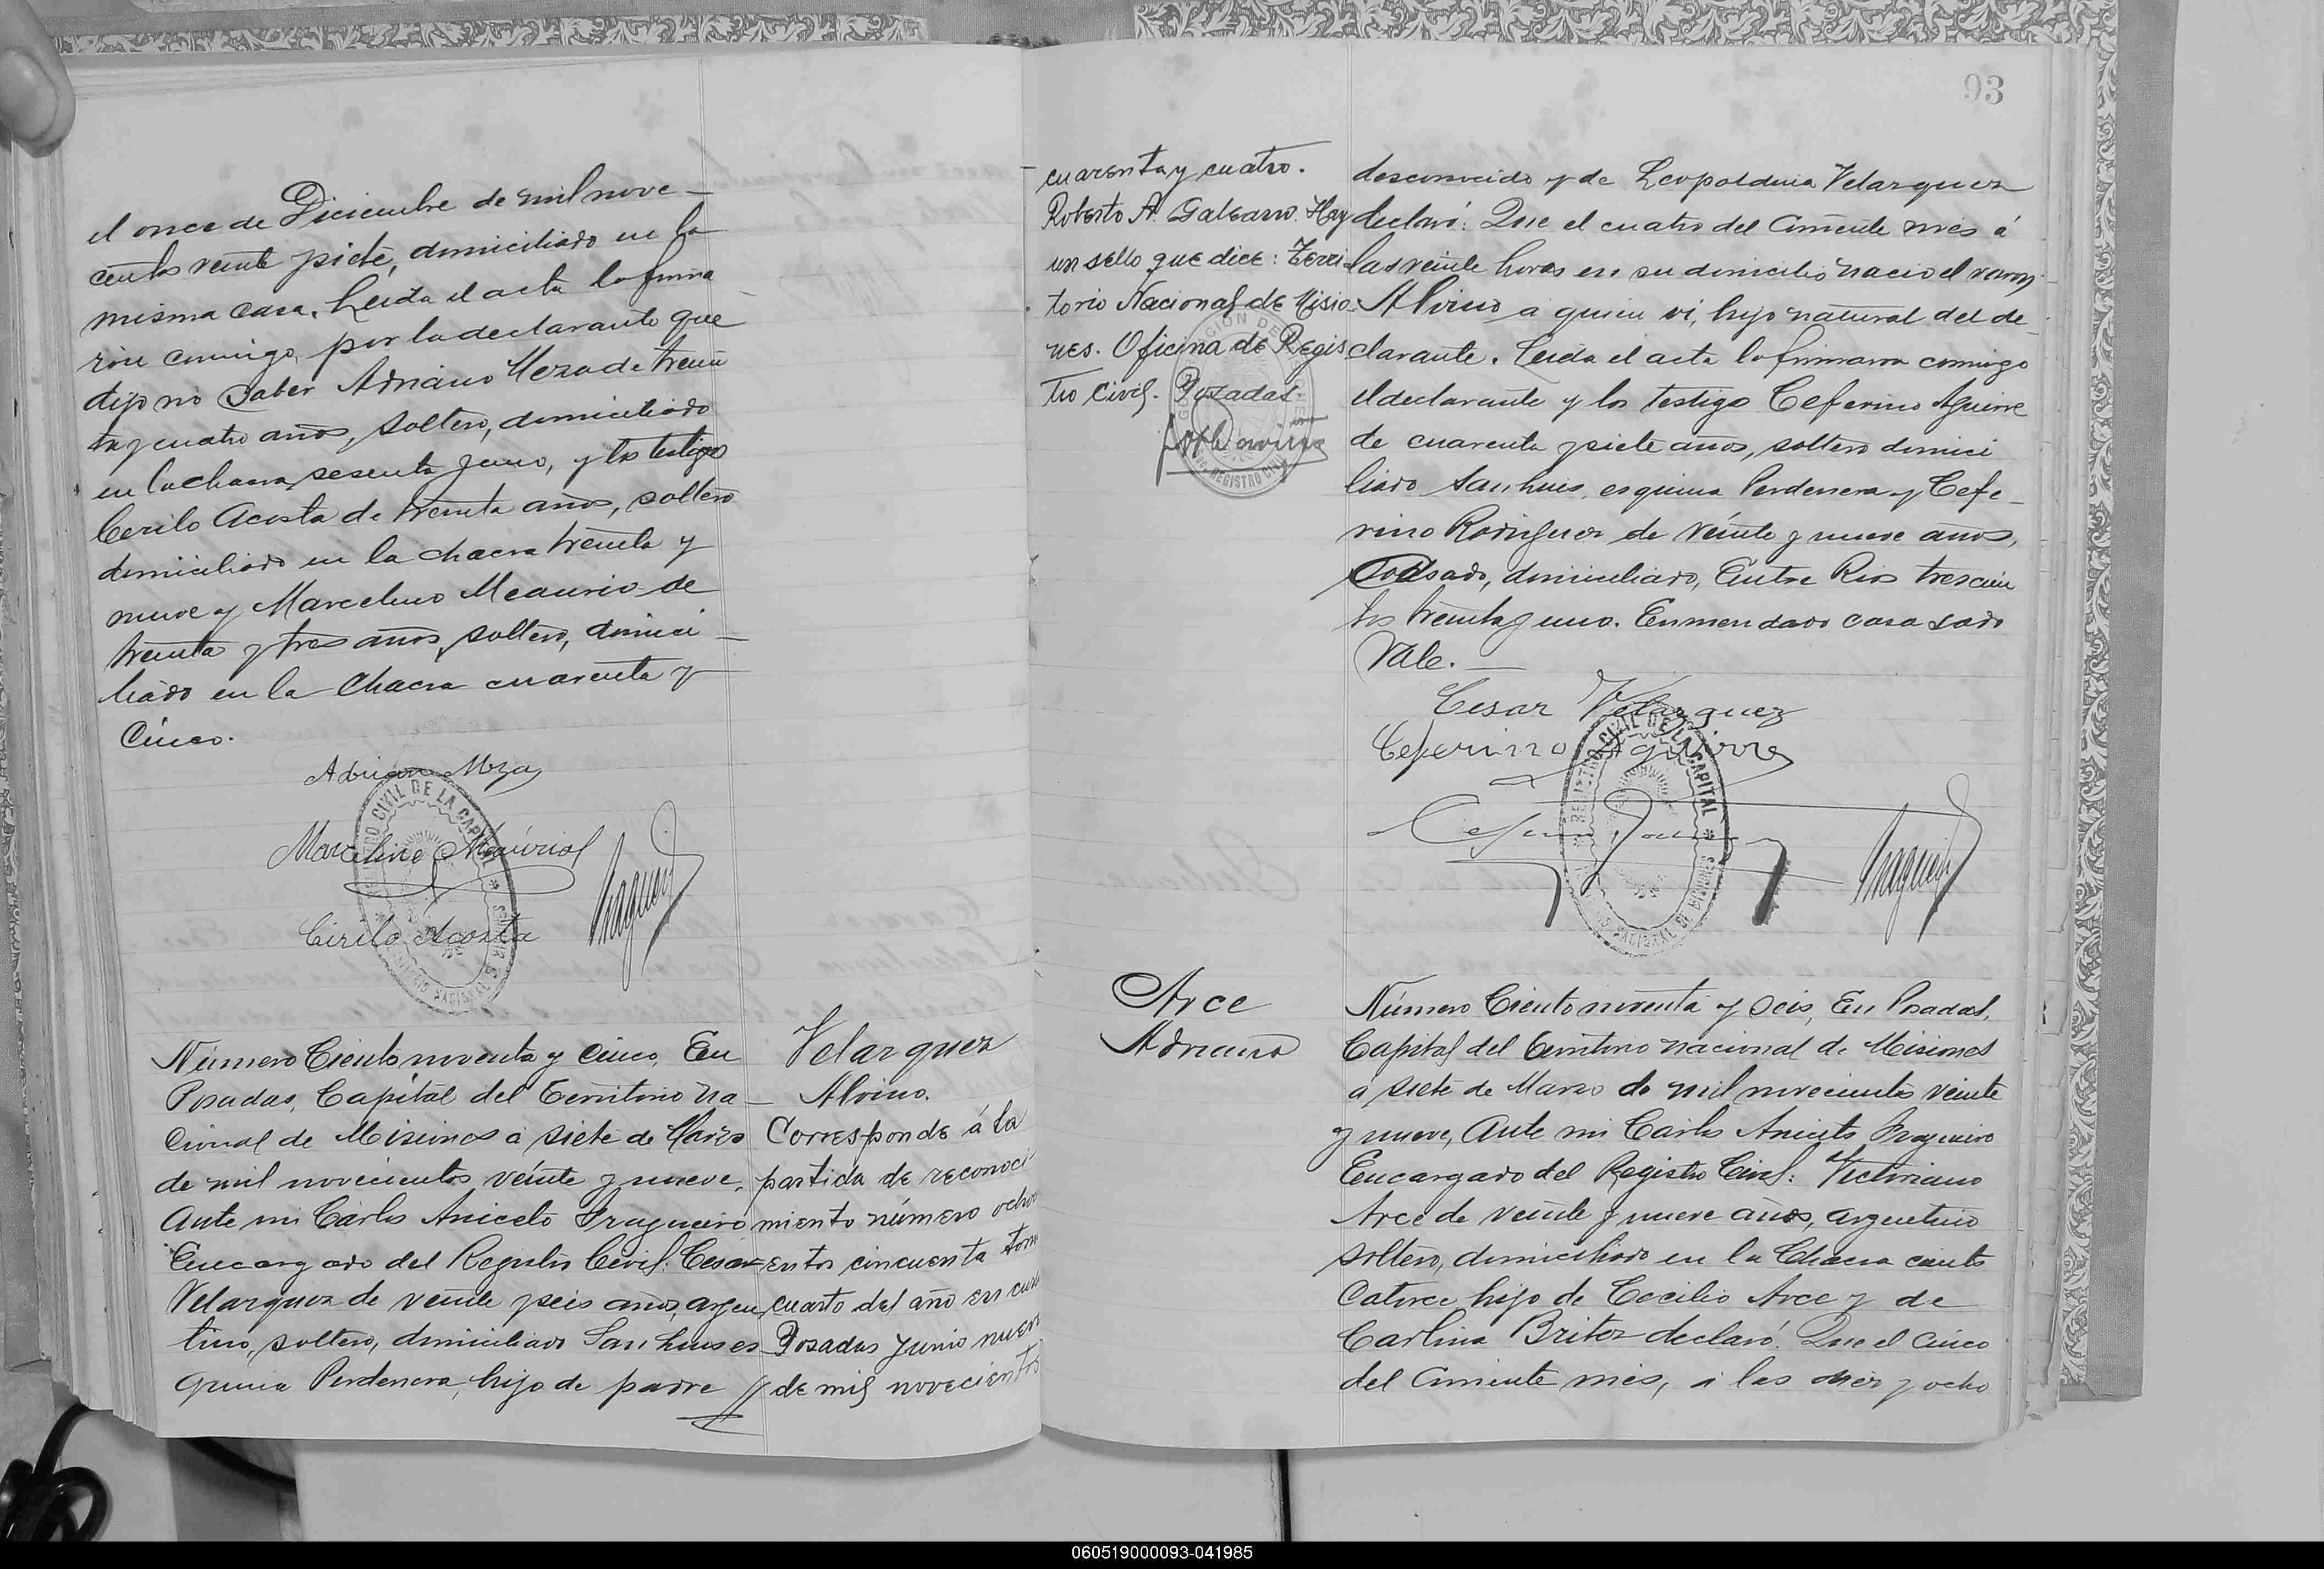 el once de Diciembre de mil nove-
cientos veinte y siete, domiciliado en la
misma casa. Leida el acta la firma
ron conmigo, por la declarante que
dijo no saber Adriano Meza de trein
ta y cuatro años, soltero, domiciliado
en la chacra sesenta y uno, y los testigos
Cerilo Acosta de treinta años, soltero
domiciliado en la chacra treinta y
nueve y Marcelino Meaurio de
treinta y tres años, soltero, domici-
liado en la Chacra cuarenta y
Cinco.
Adrian Meza
Marcelino Meaurio
Cirilo Acosta
REGISTRO CIVIL DE LA CAPITAL
Número Ciento noventa y cinco, En
Posadas, Capital del Territorio Na-
cional de Misiones a siete de Marzo
de mil novecientos veinte y nueve,
Ante mi Carlos Aniceto Fragueiro
Encargado del Registro Civil: Cesar
Velarquez de veinte y seis años, argen
tino, soltero, domiciliado San Luis es
quina Perdenera, hijo de padre //
Velarquez
Alvino.
Corresponde á la
partida de reconoci
miento número ocho
cientos cincuenta tomo
cuarto del año en curso
Posadas Junio nueve
de mil novecientos
93
cuarenta y cuatro.
Roberto A. Galearro. Hay
un sello que dice: Terri-
torio Nacional de Misio-
nes. Oficina de Regis
tro Civil. Posadas.
REGISTRO CIVIL
desconocido y de Leopoldina Velarquez
declaró: Que el cuatro del corriente mes á
las veinte horas en su domicilio nacio el varon
Alvino a quien vi, hijo natural del de-
clarante. Leida el acta la firmaron conmigo
el declarante y los testigo Ceferino Aguirre
de cuarenta y siete años, soltero domici
liado San Luis, esquina Perdenera y Cefe-
rino Rodriguez de veinte y nueve años,
Casado, domiciliado, Entre Rios trescien
tos treinta y uno. Enmendado casa sado
Vale.
Cesar Velazquez
Ceferino Aguirre
REGISTRO CIVIL DE LA CAPITAL
TERRITORIO NACIONAL DE MISIONES
Arce
Adriano
Número Ciento noventa y seis, En Posadas,
Capital del territorio nacional de Misiones
a siete de Marzo de mil novecientos veinte
y nueve, Ante mi Carlos Aniceto Fragueiro
Encargado del Registro Civil: Victoriano
Arce de veinte y nueve años, argentino
soltero, domiciliado en la Chacra ciento
Catorce hijo de Cecilio Arce y de
Carlina Britez declaró: Que el cinco
del corriente mes, a las diez y ocho
060519000093-041985